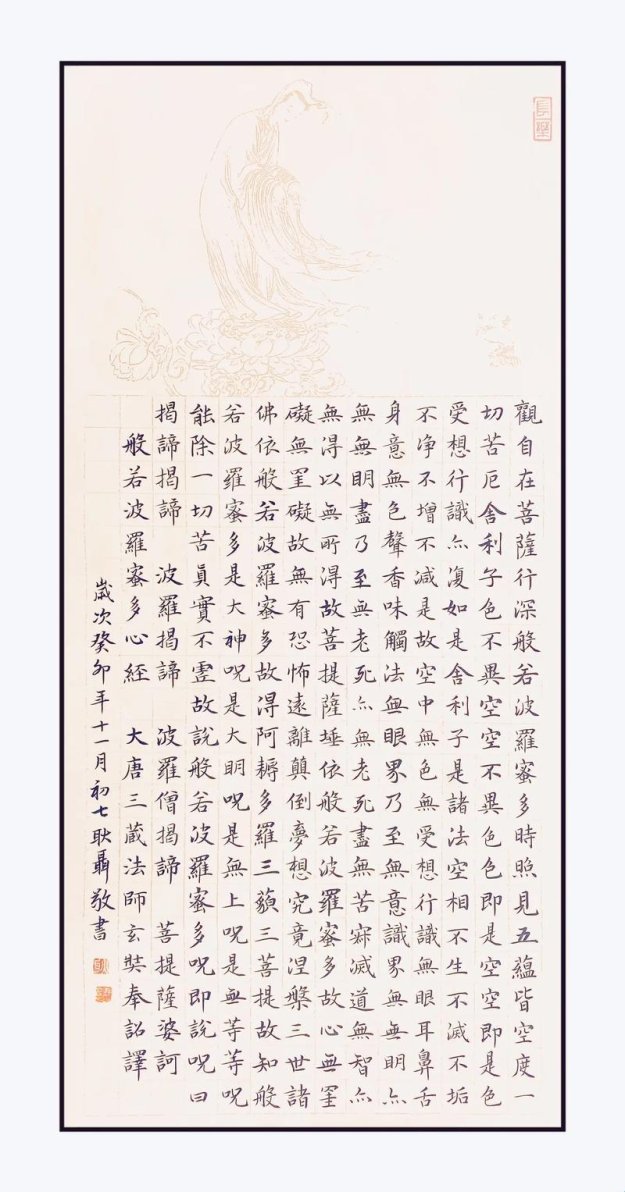 長樂
觀自在菩薩行深般若波羅蜜多時照見五蘊皆空度一
切苦厄舍利子色不異空空不異色色即是空空即是色
受想行識亦復如是舍利子是諸法空相不生不滅不垢
不净不增不減是故空中無色無受想行識無眼耳鼻舌
身意無色聲香味觸法無眼界乃至無意識界無無明亦
無無明盡乃至無老死亦無老死盡無苦寂滅道無智亦
無得以無所得故菩提薩埵依般若波羅蜜多故心無罣
礙無罣礙故無有恐怖遠離顛倒夢想究竟涅槃三世諸
佛依般若波羅蜜多故得阿耨多羅三藐三菩提故知般
若波羅蜜多是大神呪是大明呪是無上呪是無等等呪
能除一切苦真實不虛故說般若波羅蜜多呪即說呪曰
揭諦揭諦 波羅揭諦 波羅僧揭諦 菩提薩婆訶
般若波羅蜜多心經 大唐三藏法師玄奘奉詔譯
歲次癸卯年十一月初七耿聶敬書